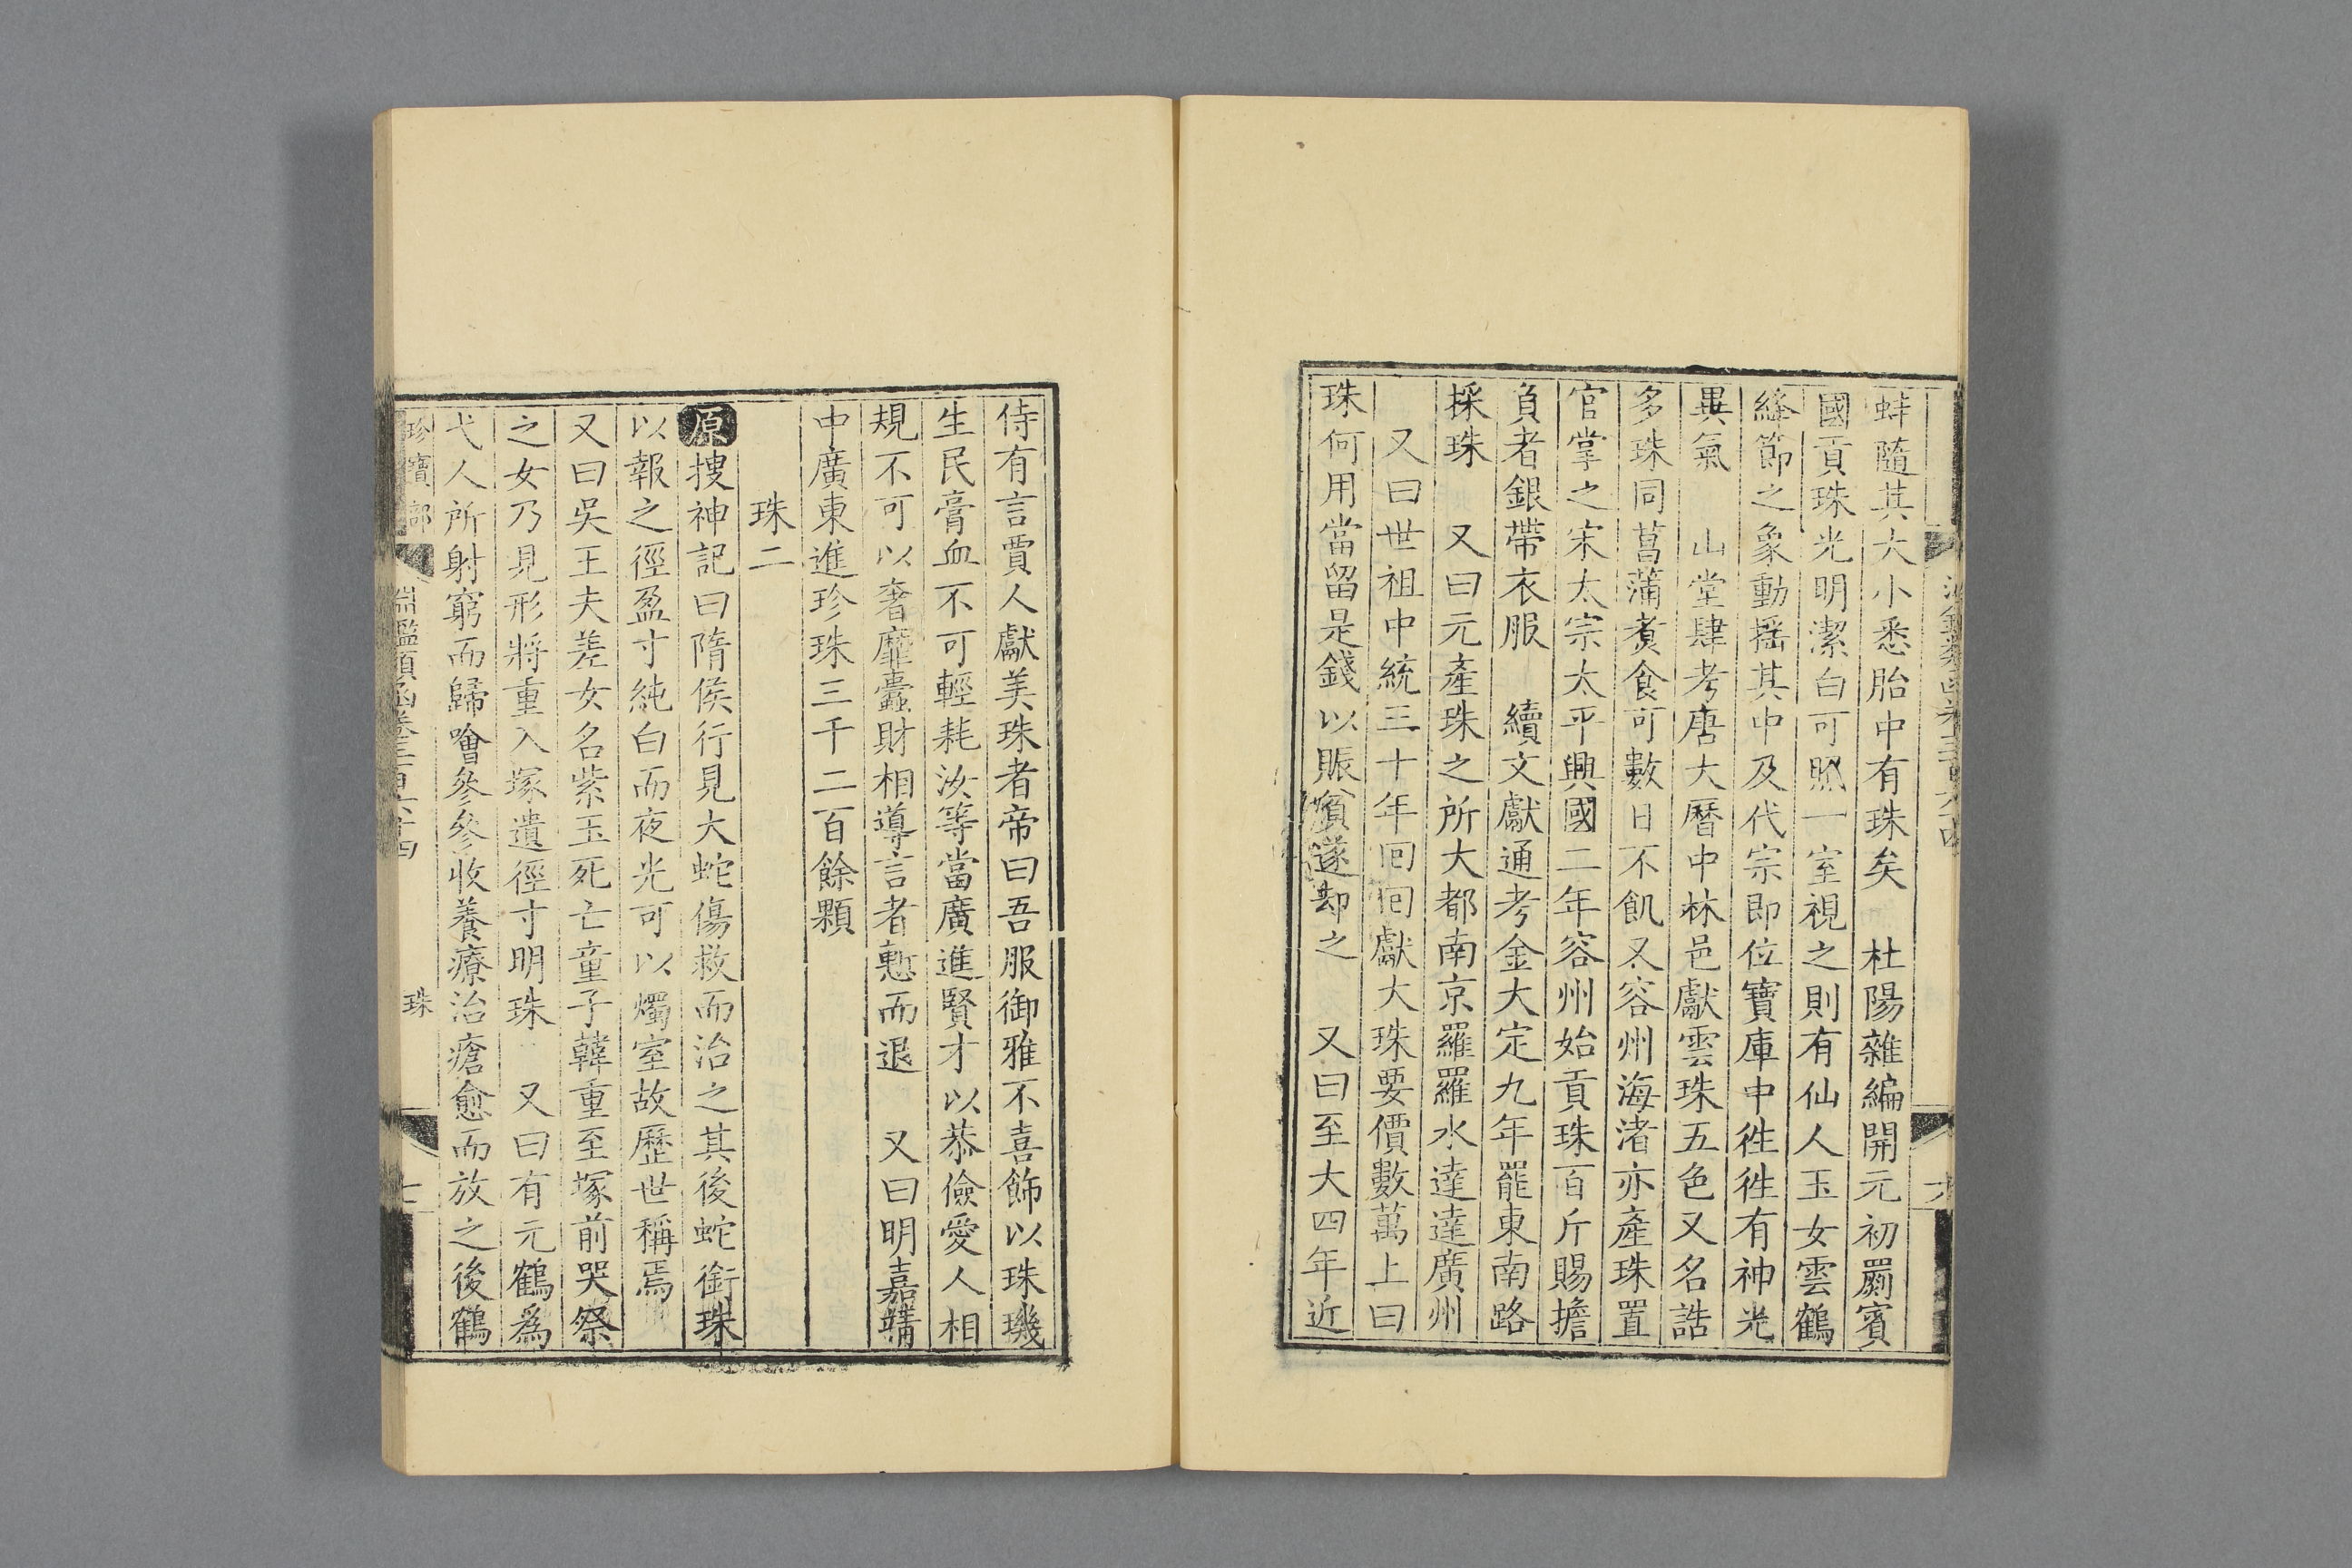 蚌隨其大小悉胎中有珠矣　杜陽雜編開元初罽賓
國貢珠光明潔白可照一室視之則有仙人玉女雲鶴
絳節之象動搖其中及代宗即位寶庫中徃徃有神光
異氣　山堂肆考唐大曆中林邑獻雲珠五色又名誥
多珠同菖蒲煑食可數日不飢又容州海渚亦產珠置
官掌之宋太宗太平興國二年容州始貢珠百斤賜擔
負者銀帶衣服　續文獻通考金大定九年罷東南路
採珠　又曰元產珠之所大都南京羅羅水達達廣州
又曰世祖中統三十年囘囘獻大珠要價數萬上曰
珠何用當留是錢以賑貧遂却之　又曰至大四年近
侍有言賈人獻美珠者帝曰吾服御雅不喜飾以珠璣
生民膏血不可輕耗汝等當廣進賢才以恭儉愛人相
規不可以奢靡蠹財相導言者慙而退　又曰明嘉靖
中廣東進珍珠三千二百餘顆
珠二
原搜神記曰隋侯行見大蛇傷救而治之其後蛇銜珠
以報之徑盈寸純白而夜光可以燭室故歷世稱焉
又曰吳王夫差女名紫玉死亡童子韓重至塚前哭祭
之女乃見形將重入塚遺徑寸明珠　又曰有元鶴爲
弋人所射窮而歸噲參參收養療治瘡愈而放之後鶴
珍寶部　淵鑑類函卷三百六十四　珠　七